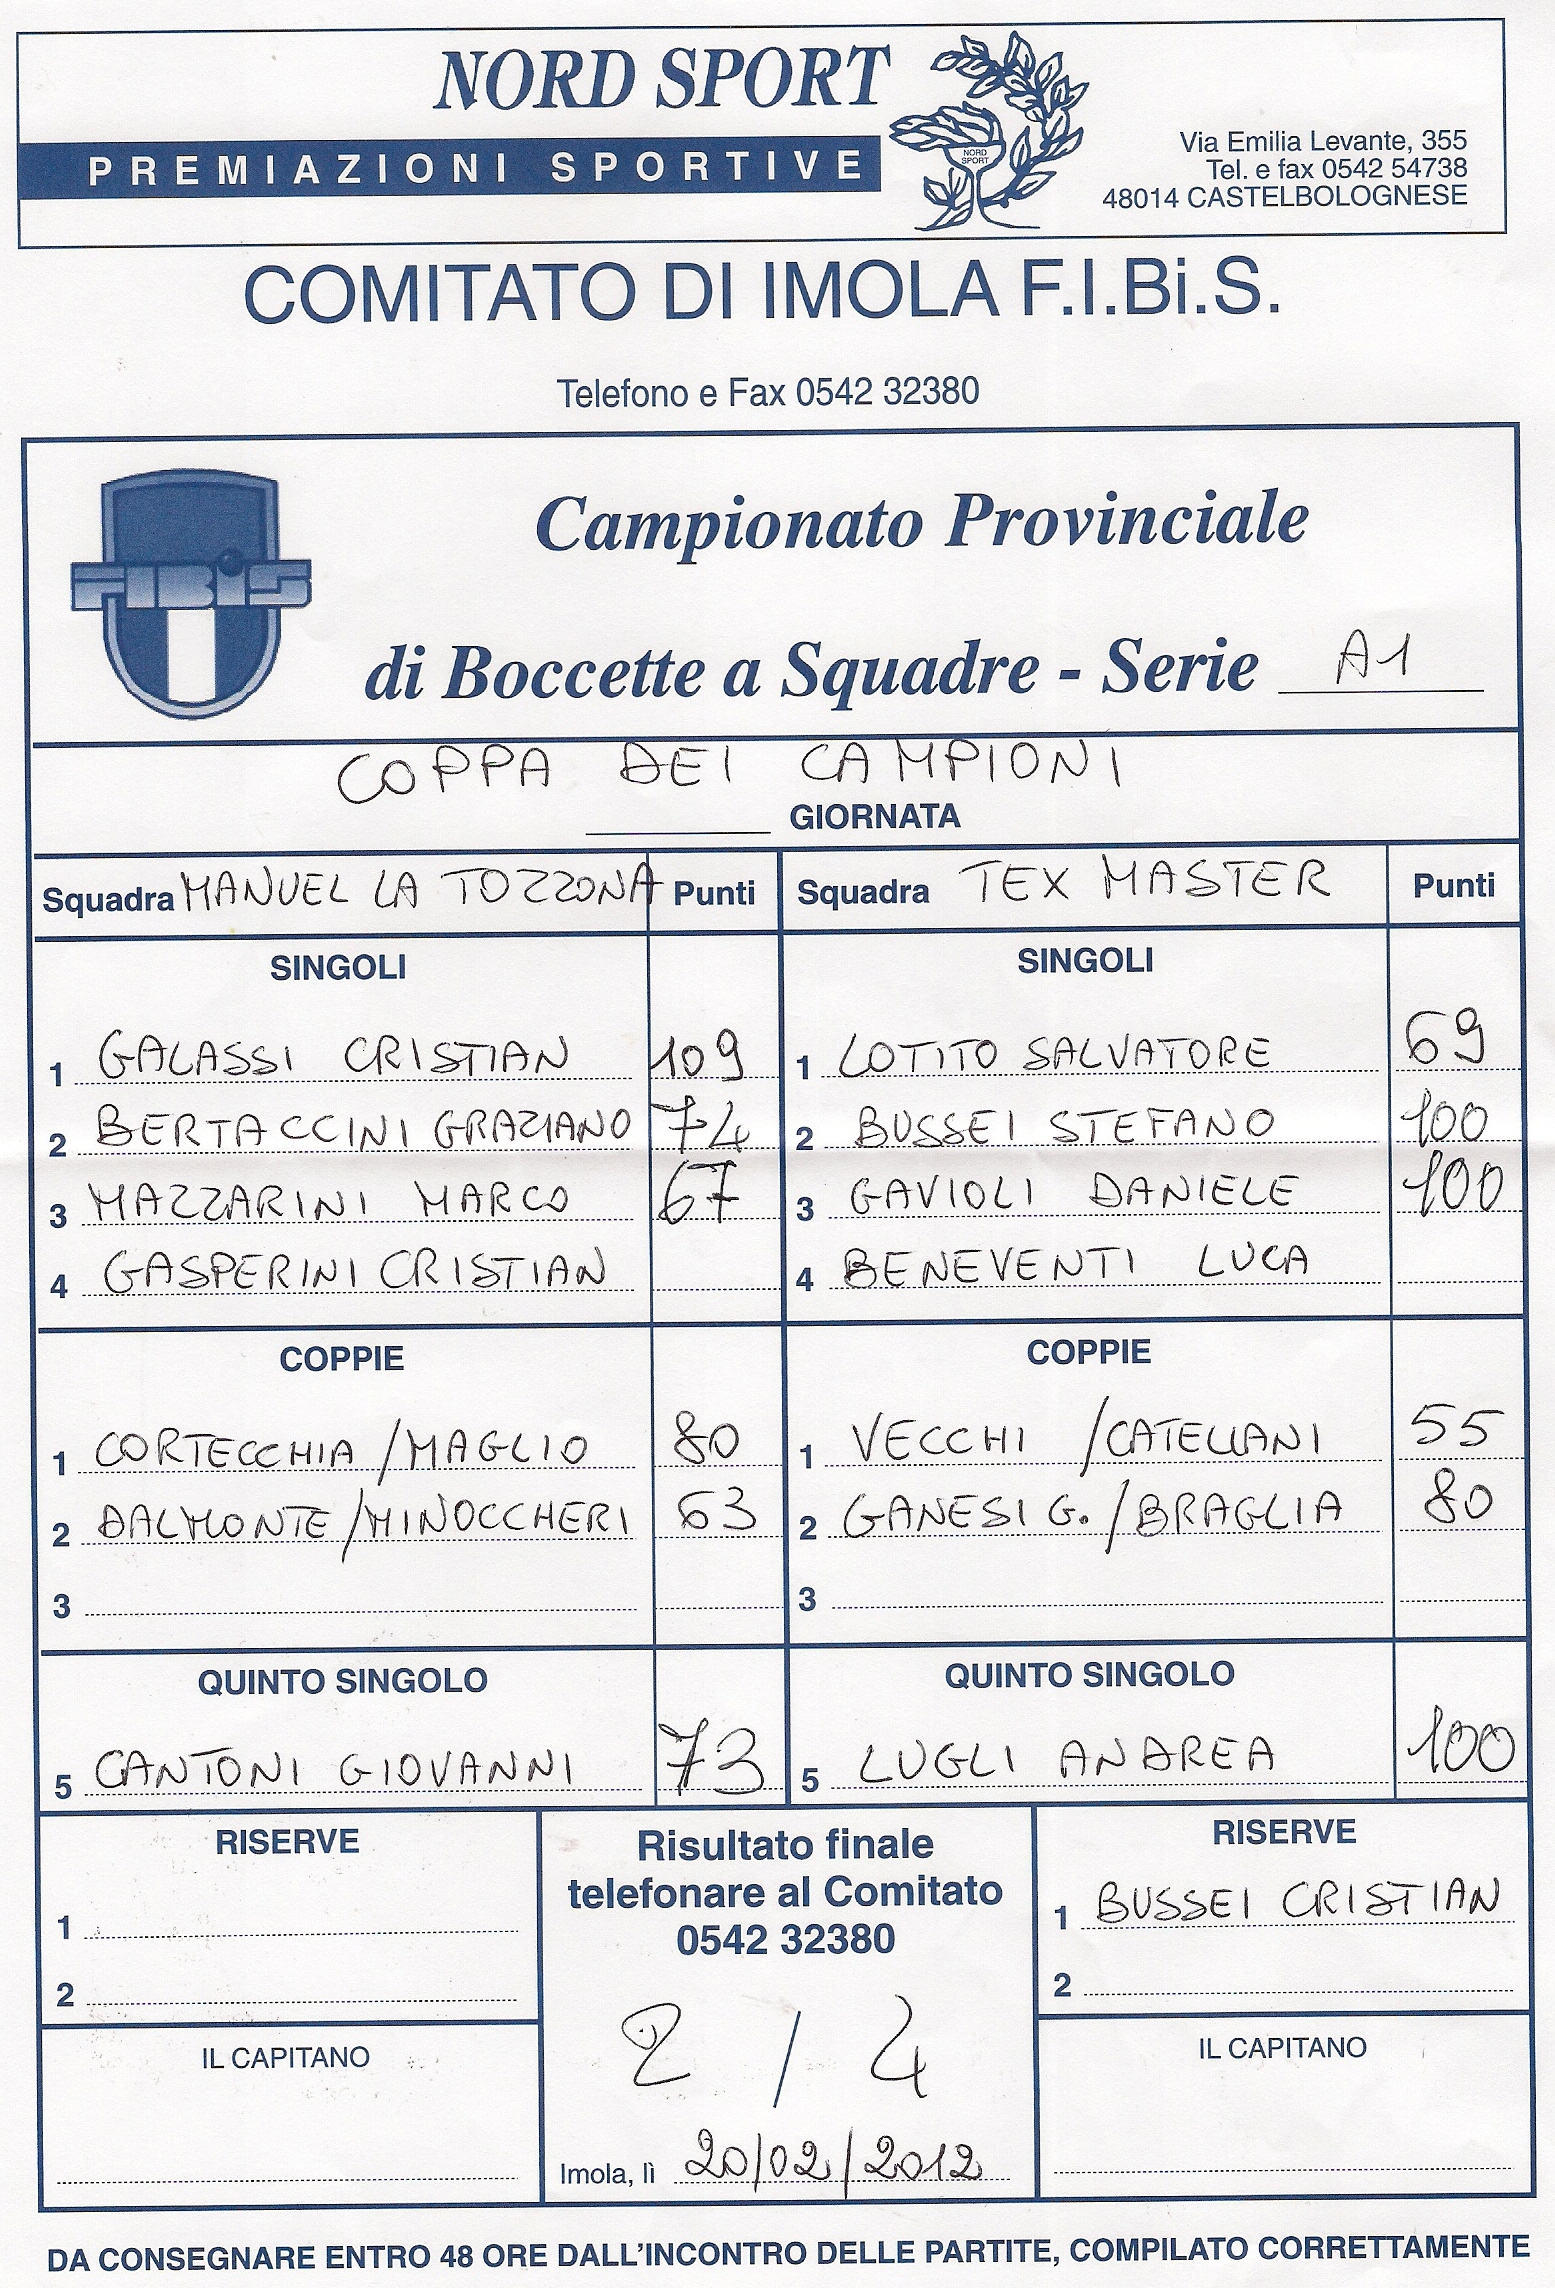 NORD SPORT
PREMIAZIONI SPORTIVE
NORD
SPORT
Via Emilia Levante, 355
Tel. e fax 0542 54738
48014 CASTELBOLOGNESE
COMITATO DI IMOLA F.I.Bi.S.
Telefono e Fax 0542 32380
FIBiS
Campionato Provinciale
di Boccette a Squadre - Serie A1
COPPA DEI CAMPIONI
GIORNATA
Squadra MANUEL LA TOZZONA Punti Squadra TEX MASTER Punti
SINGOLI SINGOLI
1 GALASSI CRISTIAN 109 1 LOTITO SALVATORE 69
2 BERTACCINI GRAZIANO 74 2 BUSSEI STEFANO 100
3 MAZZARINI MARCO 67 3 GAVIOLI DANIELE 100
4 GASPERINI CRISTIAN 4 BENEVENTI LUCA
COPPIE COPPIE
1 CORTECCHIA / MAGLIO 80 1 VECCHI / CATELLANI 55
2 DALMONTE / MINOCCHERI 63 2 GANESI G. / BRAGLIA 80
3 3
QUINTO SINGOLO QUINTO SINGOLO
5 CANTONI GIOVANNI 73 5 LUGLI ANDREA 100
RISERVE
1
2
IL CAPITANO
Risultato finale
telefonare al Comitato
0542 32380
2 / 4
Imola, lì 20/02/2012
RISERVE
1 BUSSEI CRISTIAN
2
IL CAPITANO
DA CONSEGNARE ENTRO 48 ORE DALL'INCONTRO DELLE PARTITE, COMPILATO CORRETTAMENTE